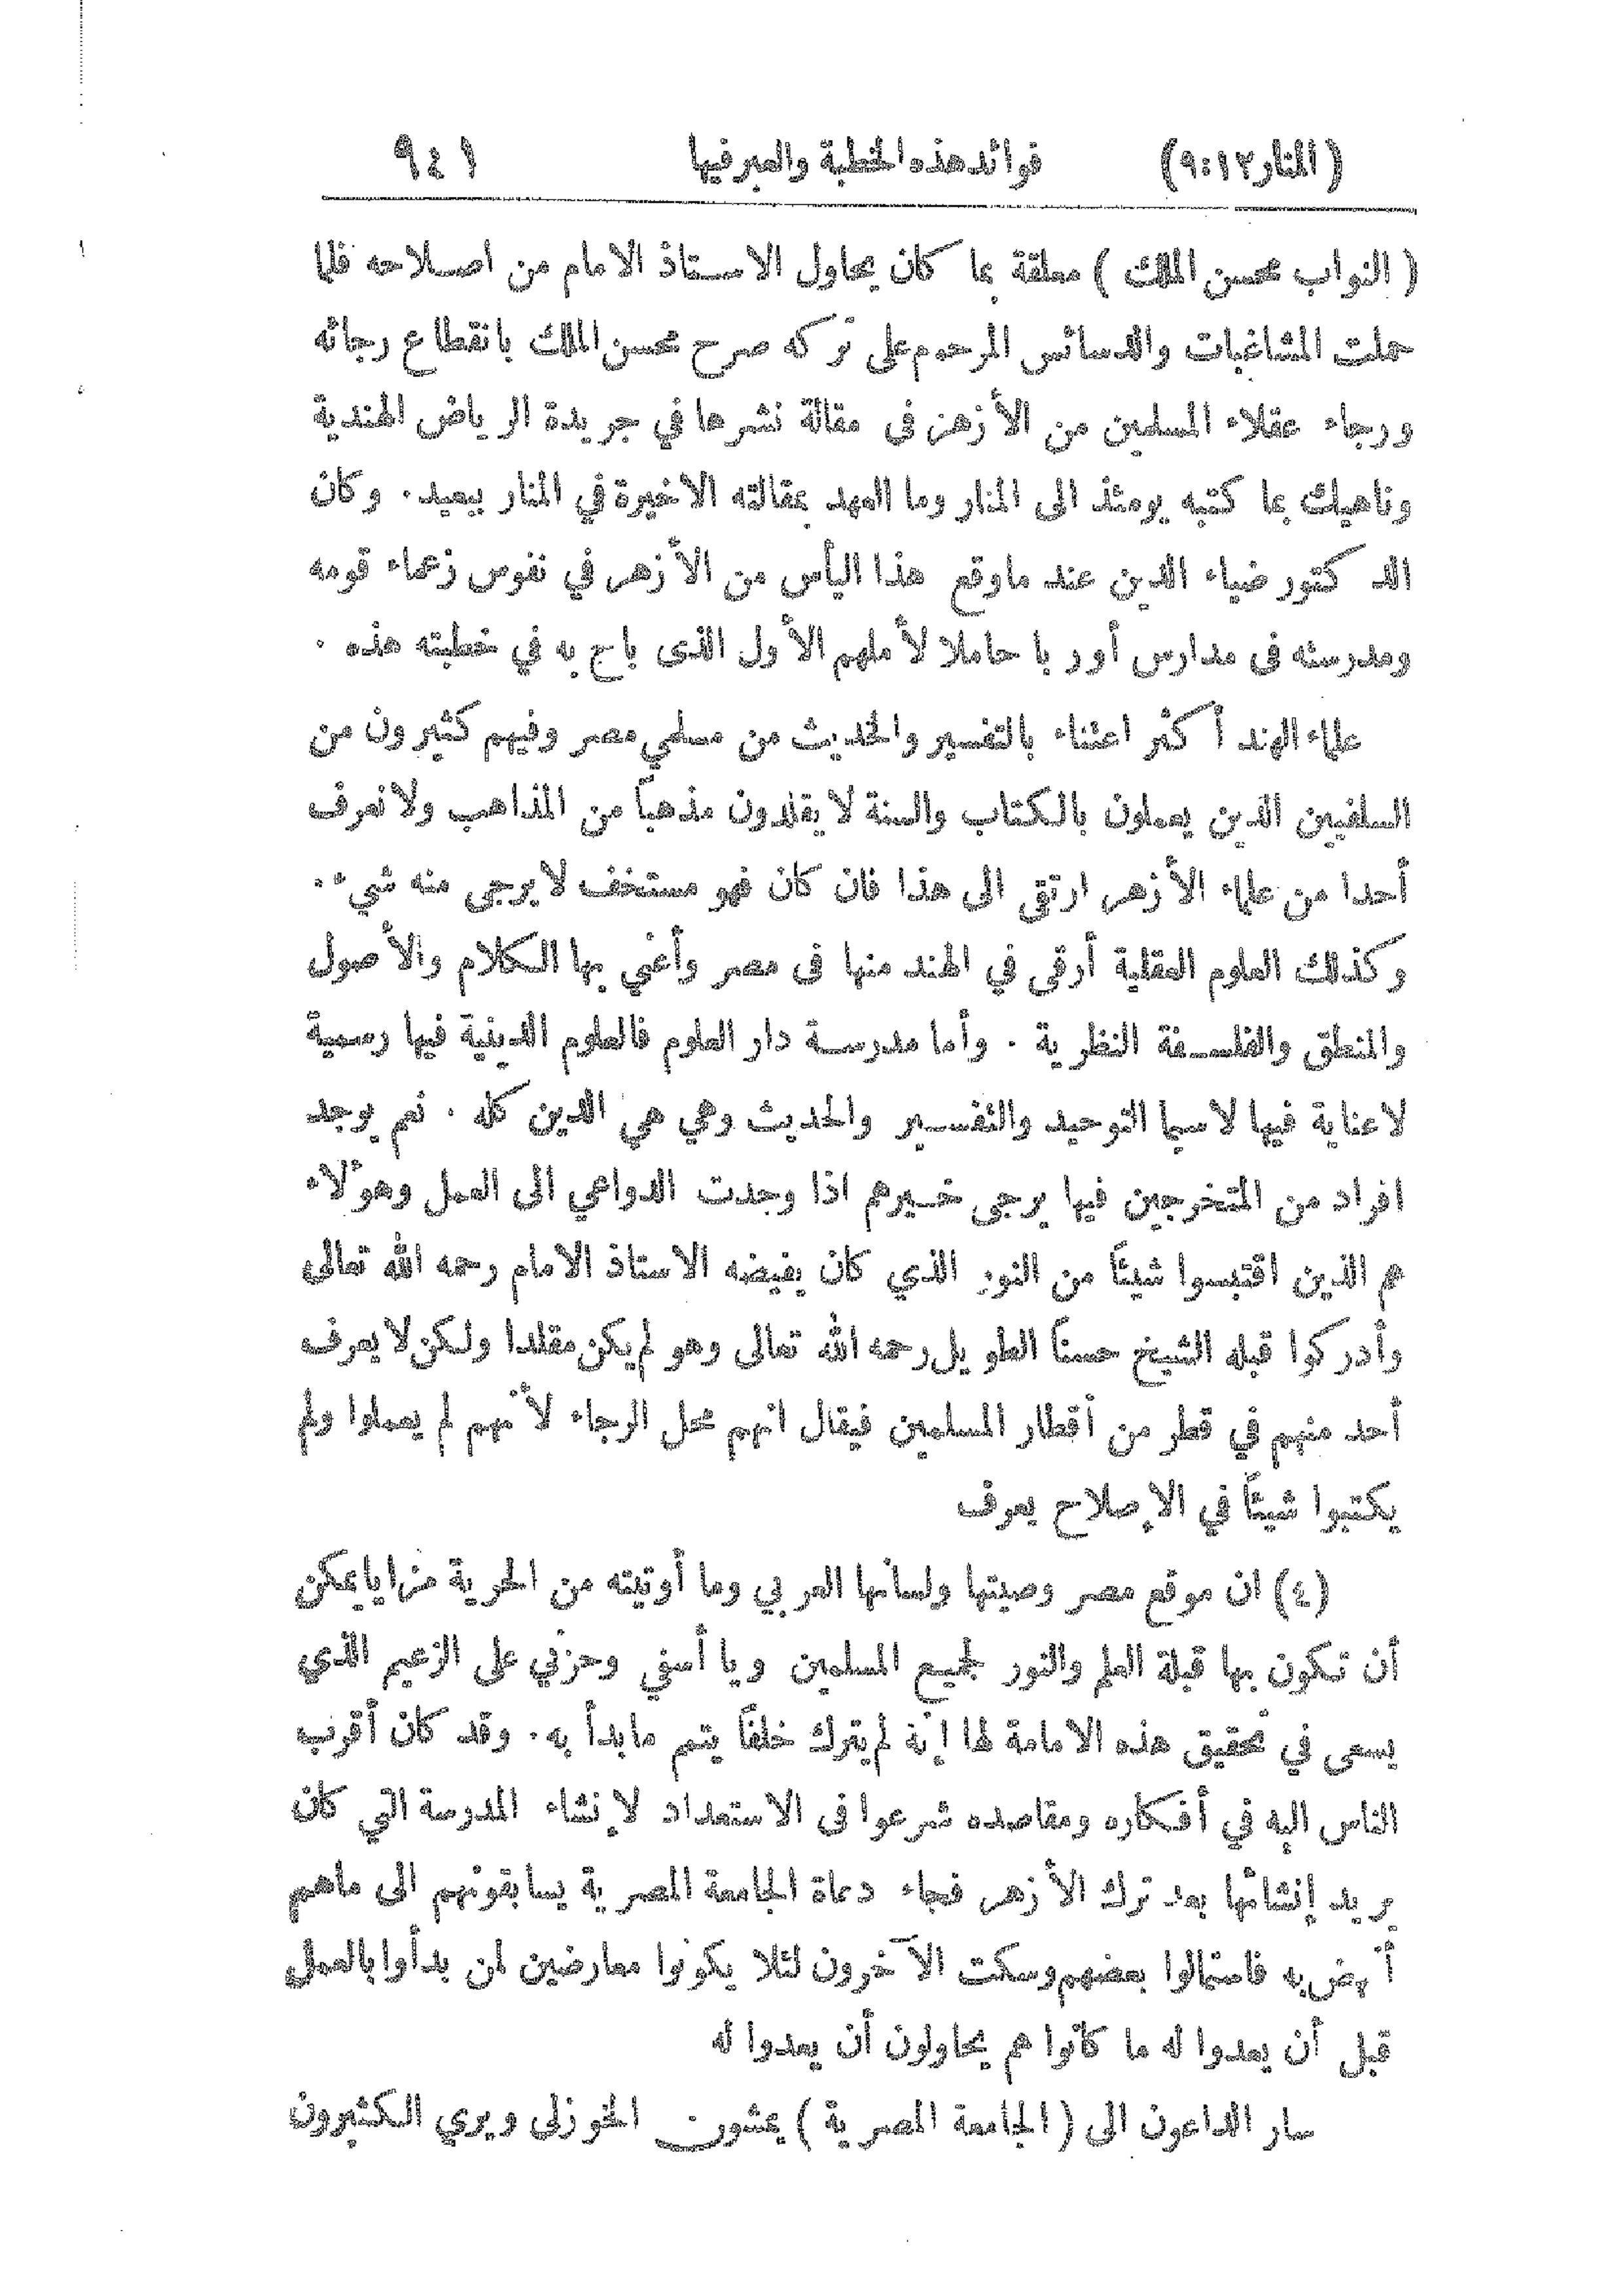 (المنار ١٢: ٩) فوائد هذه الخطبة والعبر فيها ٩٤١
( النواب محسن الملك ) معلقة بما كان يحاول الاستاذ الامام من اصلاحه فلما
حملت المشاغبات والدسائس المرحوم على تركه صرح محسن الملك بانقطاع رجائه
ورجاء عقلاء المسلمين من الأزهر فى مقالة نشرها في جريدة الرياض الهندية
وناهيك بما كتبه يومئذ الى المنار وما العهد بمقالته الاخيرة في المنار ببعيد . وكان
الدكتور ضياء الدين عند ماوقع هذا اليأس من الأزهر في نفوس زعماء قومه
ومدرسته فى مدارس أوربا حاملا لأملهم الأول الذى باح به في خطبته هذه .
علماء الهند أكثر اعتناء بالتفسير والحديث من مسلمي مصر وفيهم كثيرون من
السلفيين الذين يعملون بالكتاب والسنة لا يقلدون مذهباً من المذاهب ولا نعرف
أحدا من علماء الأزهر ارتقى الى هذا فان كان فهو مستخف لا يرجى منه شيء .
وكذلك العلوم العقلية أرقى في الهند منها فى مصر وأعني بها الكلام والأصول
والمنطق والفلسفة النظرية . وأما مدرسة دار العلوم فالعلوم الدينية فيها رسمية
لاعناية فيها لاسيما التوحيد والتفسير والحديث وهي هي الدين كله . نعم يوجد
افراد من المتخرجين فيها يرجى خيرهم اذا وجدت الدواعي الى العمل وهؤلاء
هم الذين اقتبسوا شيئاً من النور الذي كان يفيضه الاستاذ الامام رحمه الله تعالى
وأدركوا قبله الشيخ حسناً الطويل رحمه الله تعالى وهو لم يكن مقلدا ولكن لا يعرف
أحد منهم في قطر من أقطار المسلمين فيقال انهم محل الرجاء لأنهم لم يعملوا ولم
يكتبوا شيئاً في الإصلاح يعرف
(٤) ان موقع مصر وصيتها ولسانها العربي وما أوتيته من الحرية مزايا يمكن
أن تكون بها قبلة العلم والنور لجميع المسلمين ويا أسفي وحزني على الزعيم الذي
يسعى في تحقيق هذه الامامة لها إنه لم يترك خلفاً يتم مابدأ به . وقد كان أقرب
الناس اليه في أفكاره ومقاصده شرعوا فى الاستعداد لإنشاء المدرسة التي كان
يريد إنشائها بعد ترك الأزهر فجاء دعاة الجامعة المصرية يسابقونهم الى ماهم
أنهض به فاستمالوا بعضهم وسكت الآخرون لئلا يكونوا معارضين لمن بدأوا بالعمل
قبل أن يعدوا له ما كانوا هم يحاولون أن يعدوا له
سار الداعون الى ( الجامعة المصرية ) يمشون الخوزلى ويري الكثيرون